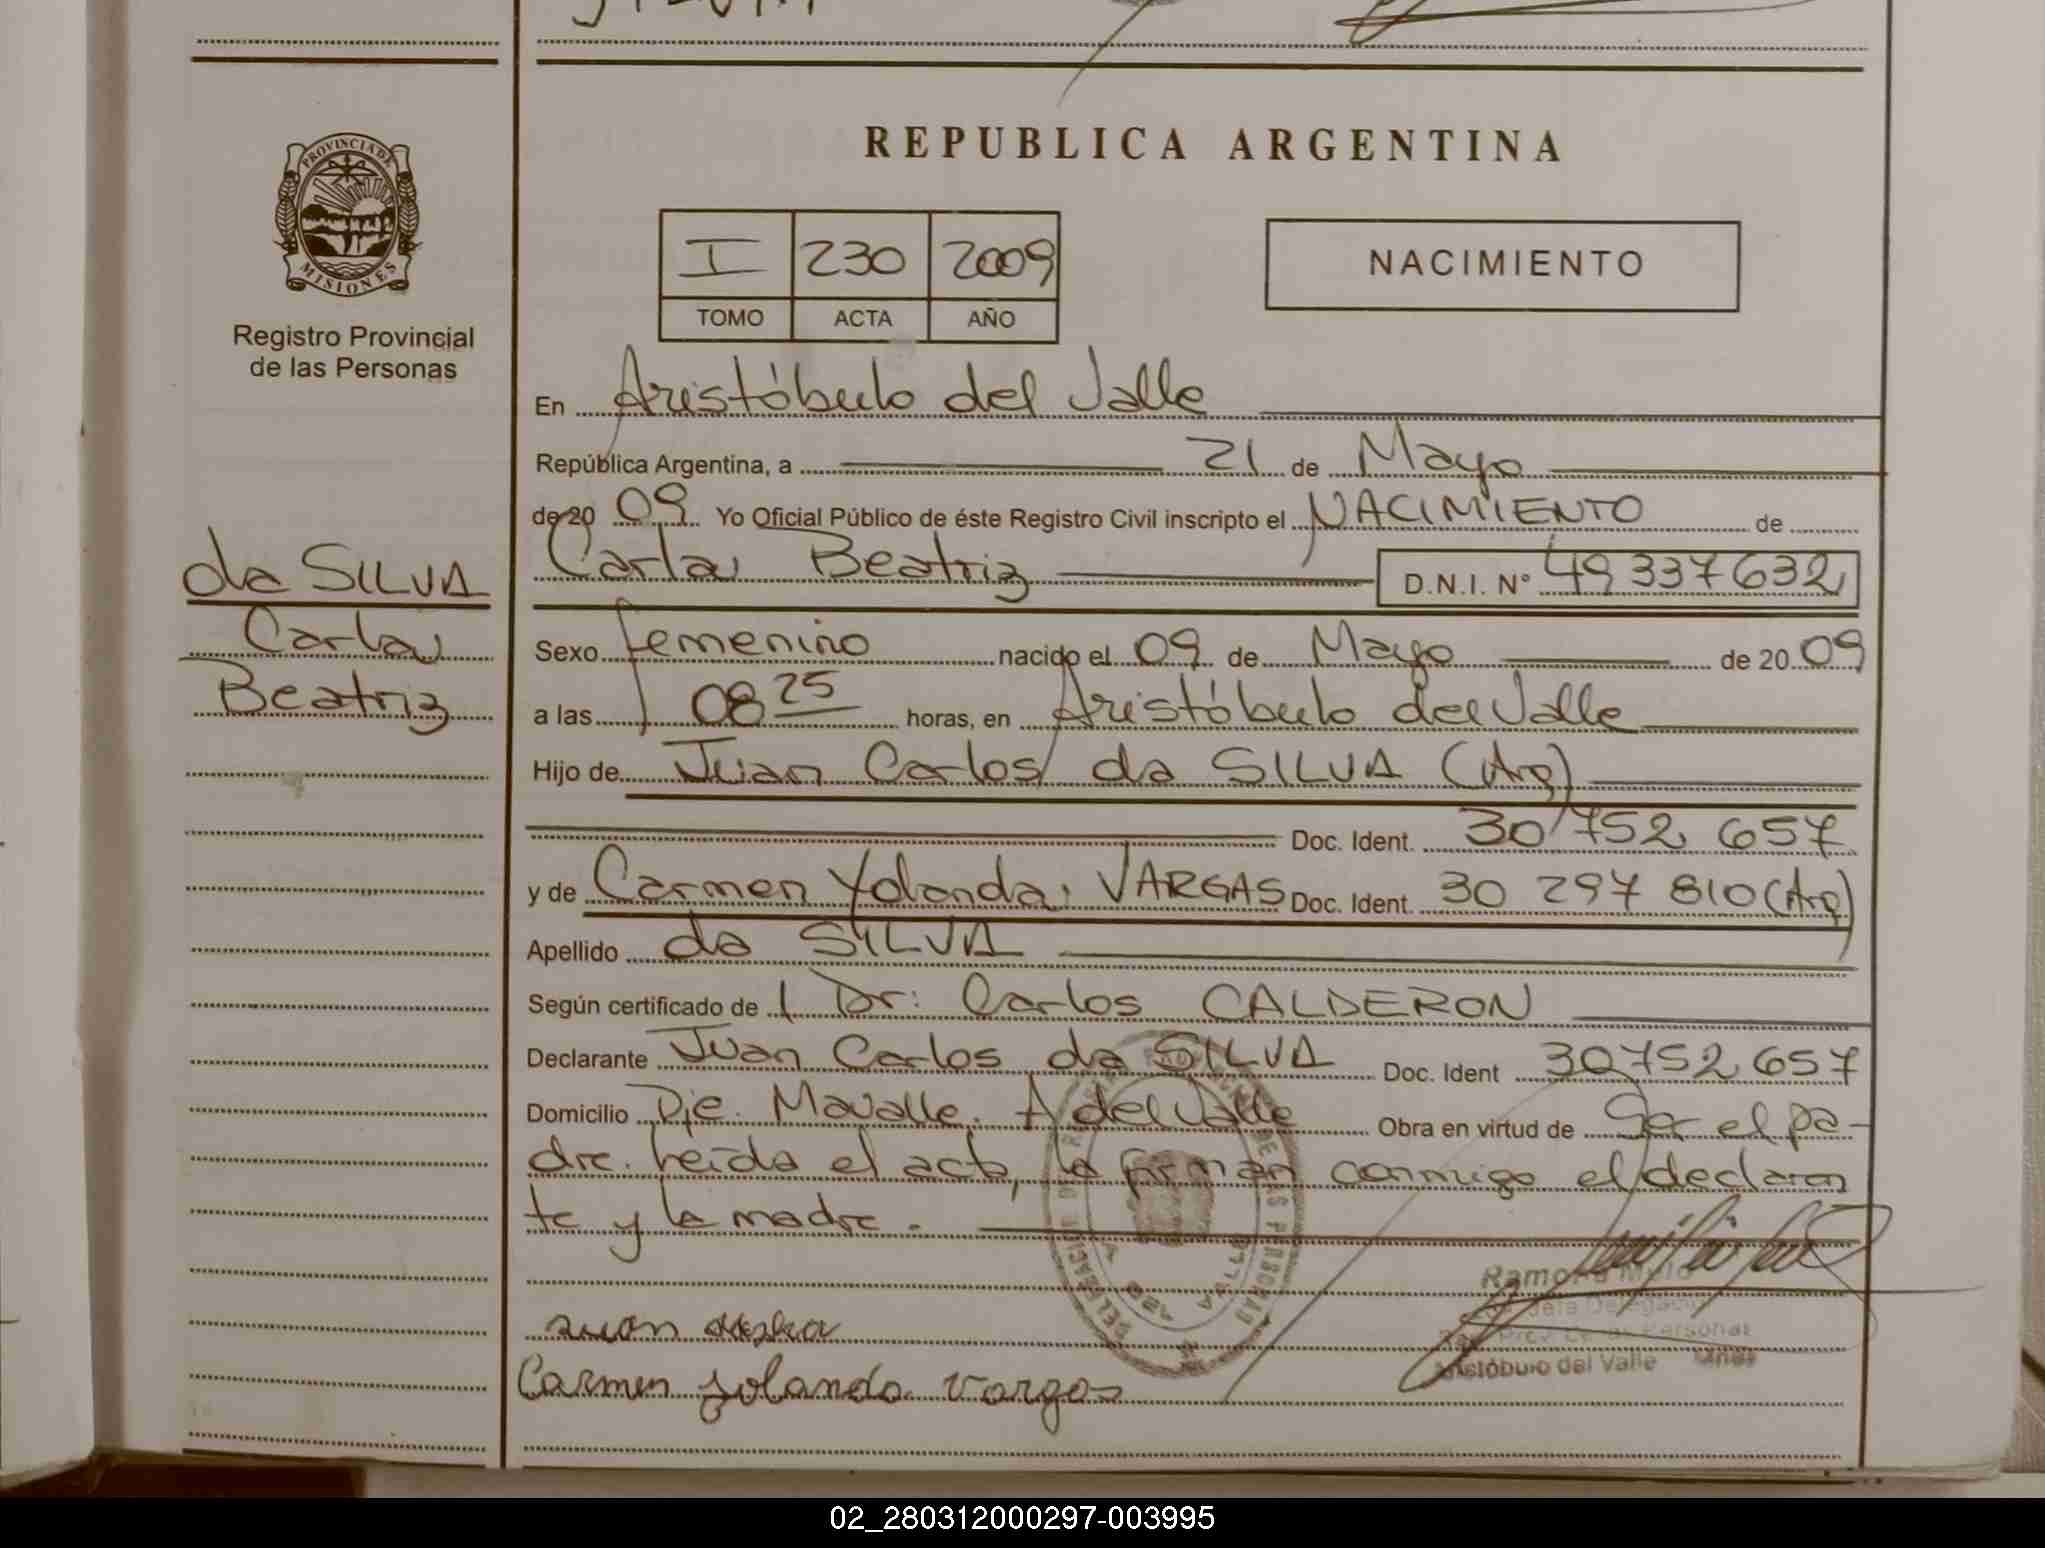 PROVINCIA DE
MISIONES
Registro Provincial
de las Personas
da SILVA
Carla
Beatriz
REPUBLICA ARGENTINA
I 230 2009
TOMO ACTA AÑO
NACIMIENTO
En Aristóbulo del Valle
República Argentina, a 21 de Mayo
de 20 09 Yo Oficial Público de éste Registro Civil inscripto el NACIMIENTO de
Carla Beatriz D.N.I. Nº 49 337 632
Sexo femenino nacido el 09 de Mayo de 20 09
a las 08 25 horas, en Aristóbulo del Valle
Hijo de Juan Carlos da SILVA (Arg)
Doc. Ident. 30 752 657
y de Carmen Yolanda VARGAS Doc. Ident. 30 297 810 (Arg)
Apellido da SILVA
Según certificado de Dr: Carlos CALDERON
Declarante Juan Carlos da SILVA Doc. Ident 30752 657
Domicilio Pje. Mavalle. A del Valle Obra en virtud de Ser el pa-
dre. Leída el acta, la firman conmigo el declaran
te y la madre.
Ramona Melo
Jefa Delegación
Reg. Prov. de las Personas
Aristóbulo del Valle
Juan dasilva
Carmen Yolanda Vargas
02_280312000297-003995